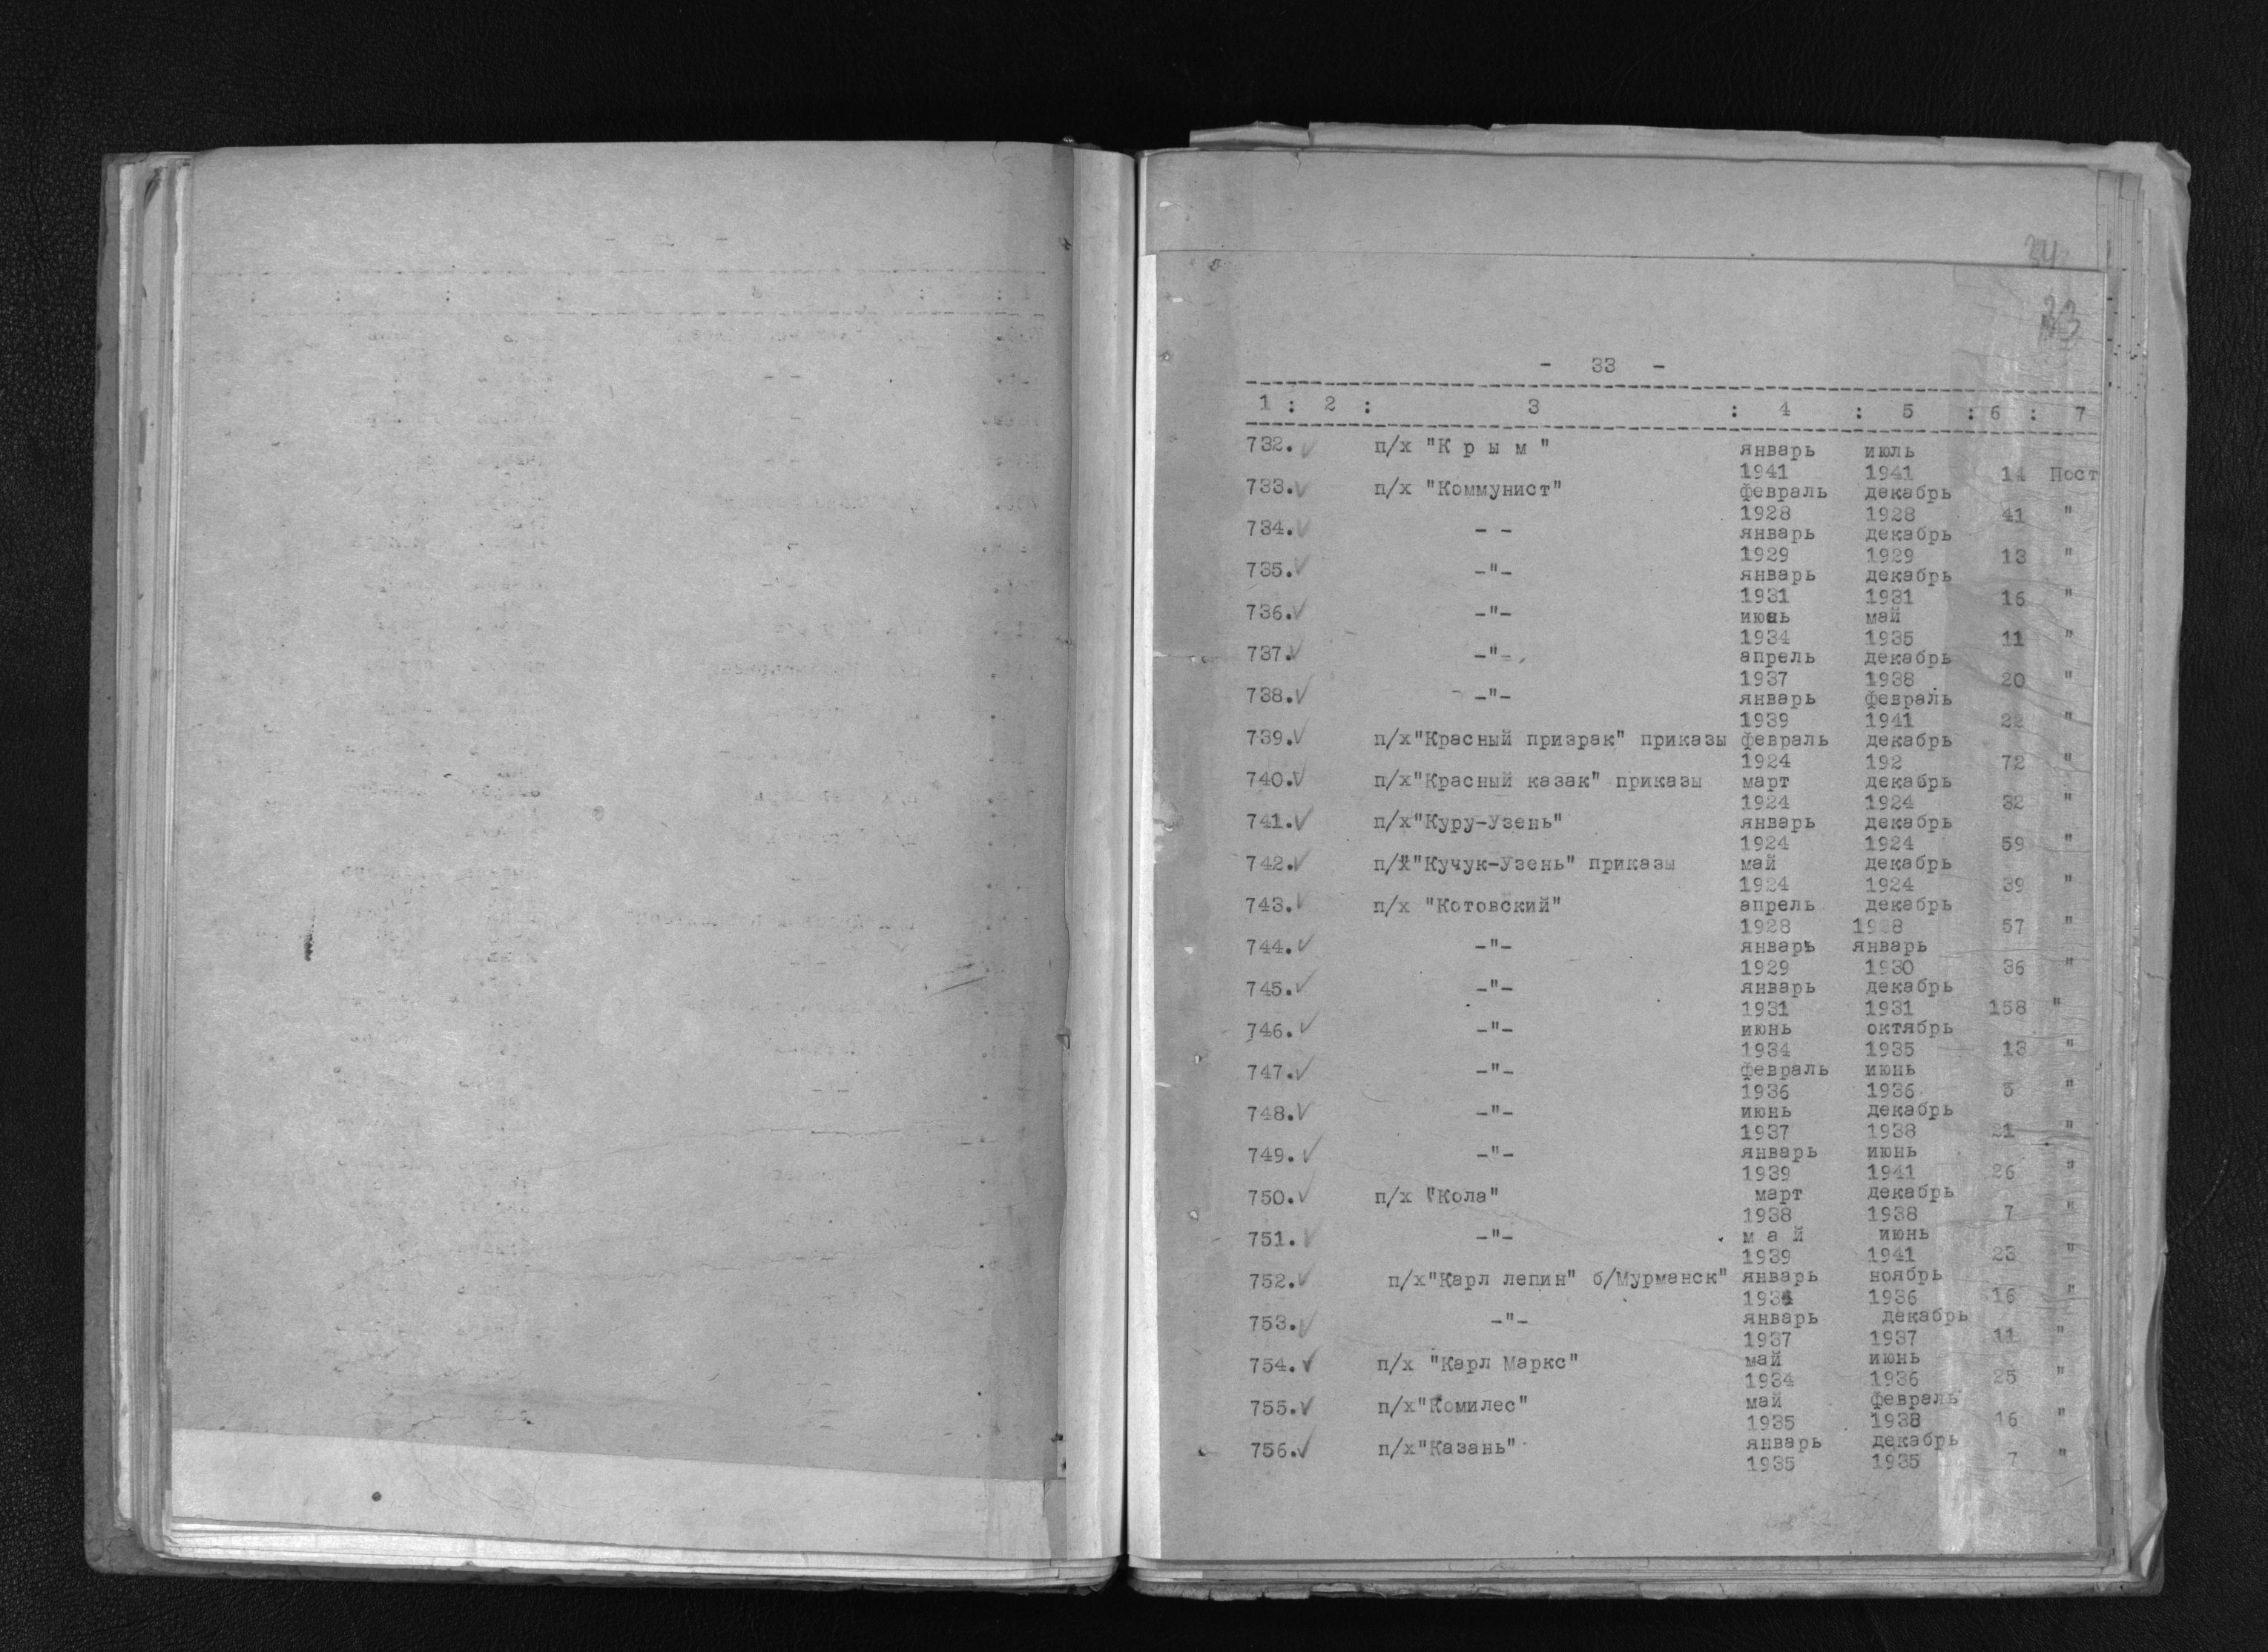 33
- 33 -
1 : 2 : 3 : 4 : 5 : 6 : 7
732. п/х "К р ы м" январь июль
1941 1941 14 Пост
733. п/х "Коммунист" февраль декабрь
1928 1928 41 "
734. - - январь декабрь
1929 1929 13 "
735. -"- январь декабрь
1931 1931 16 "
736. -"- июнь май
1934 1935 11 "
737. -"- апрель декабрь
1937 1938 20 "
738. -"- январь февраль
1939 1941 22 "
739. п/х"Красный призрак" приказы февраль декабрь
1924 192 72 "
740. п/х"Красный казак" приказы март декабрь
1924 1924 32 "
741. п/х"Куру-Узень" январь декабрь
1924 1924 59 "
742. п/х"Кучук-Узень" приказы май декабрь
1924 1924 39 "
743. п/х "Котовский" апрель декабрь
1928 1928 57 "
744. -"- январь январь
1929 1930 36 "
745. -"- январь декабрь
1931 1931 158 "
746. -"- июнь октябрь
1934 1935 13 "
747. -"- февраль июнь
1936 1936 5 "
748. -"- июнь декабрь
1937 1938 21 "
749. -"- январь июнь
1939 1941 26 "
750. п/х "Кола" март декабрь
1938 1938 7 "
751. -"- м а й июнь
1939 1941 23 "
752. п/х"Карл лепин" б/Мурманск" январь ноябрь
1934 1936 16 "
753. -"- январь декабрь
1937 1937 11 "
754. п/х "Карл Маркс" май июнь
1934 1936 25 "
755. п/х"Комилес" май февраль
1935 1938 16 "
756. п/х"Казань" январь декабрь
1935 1935 7 "